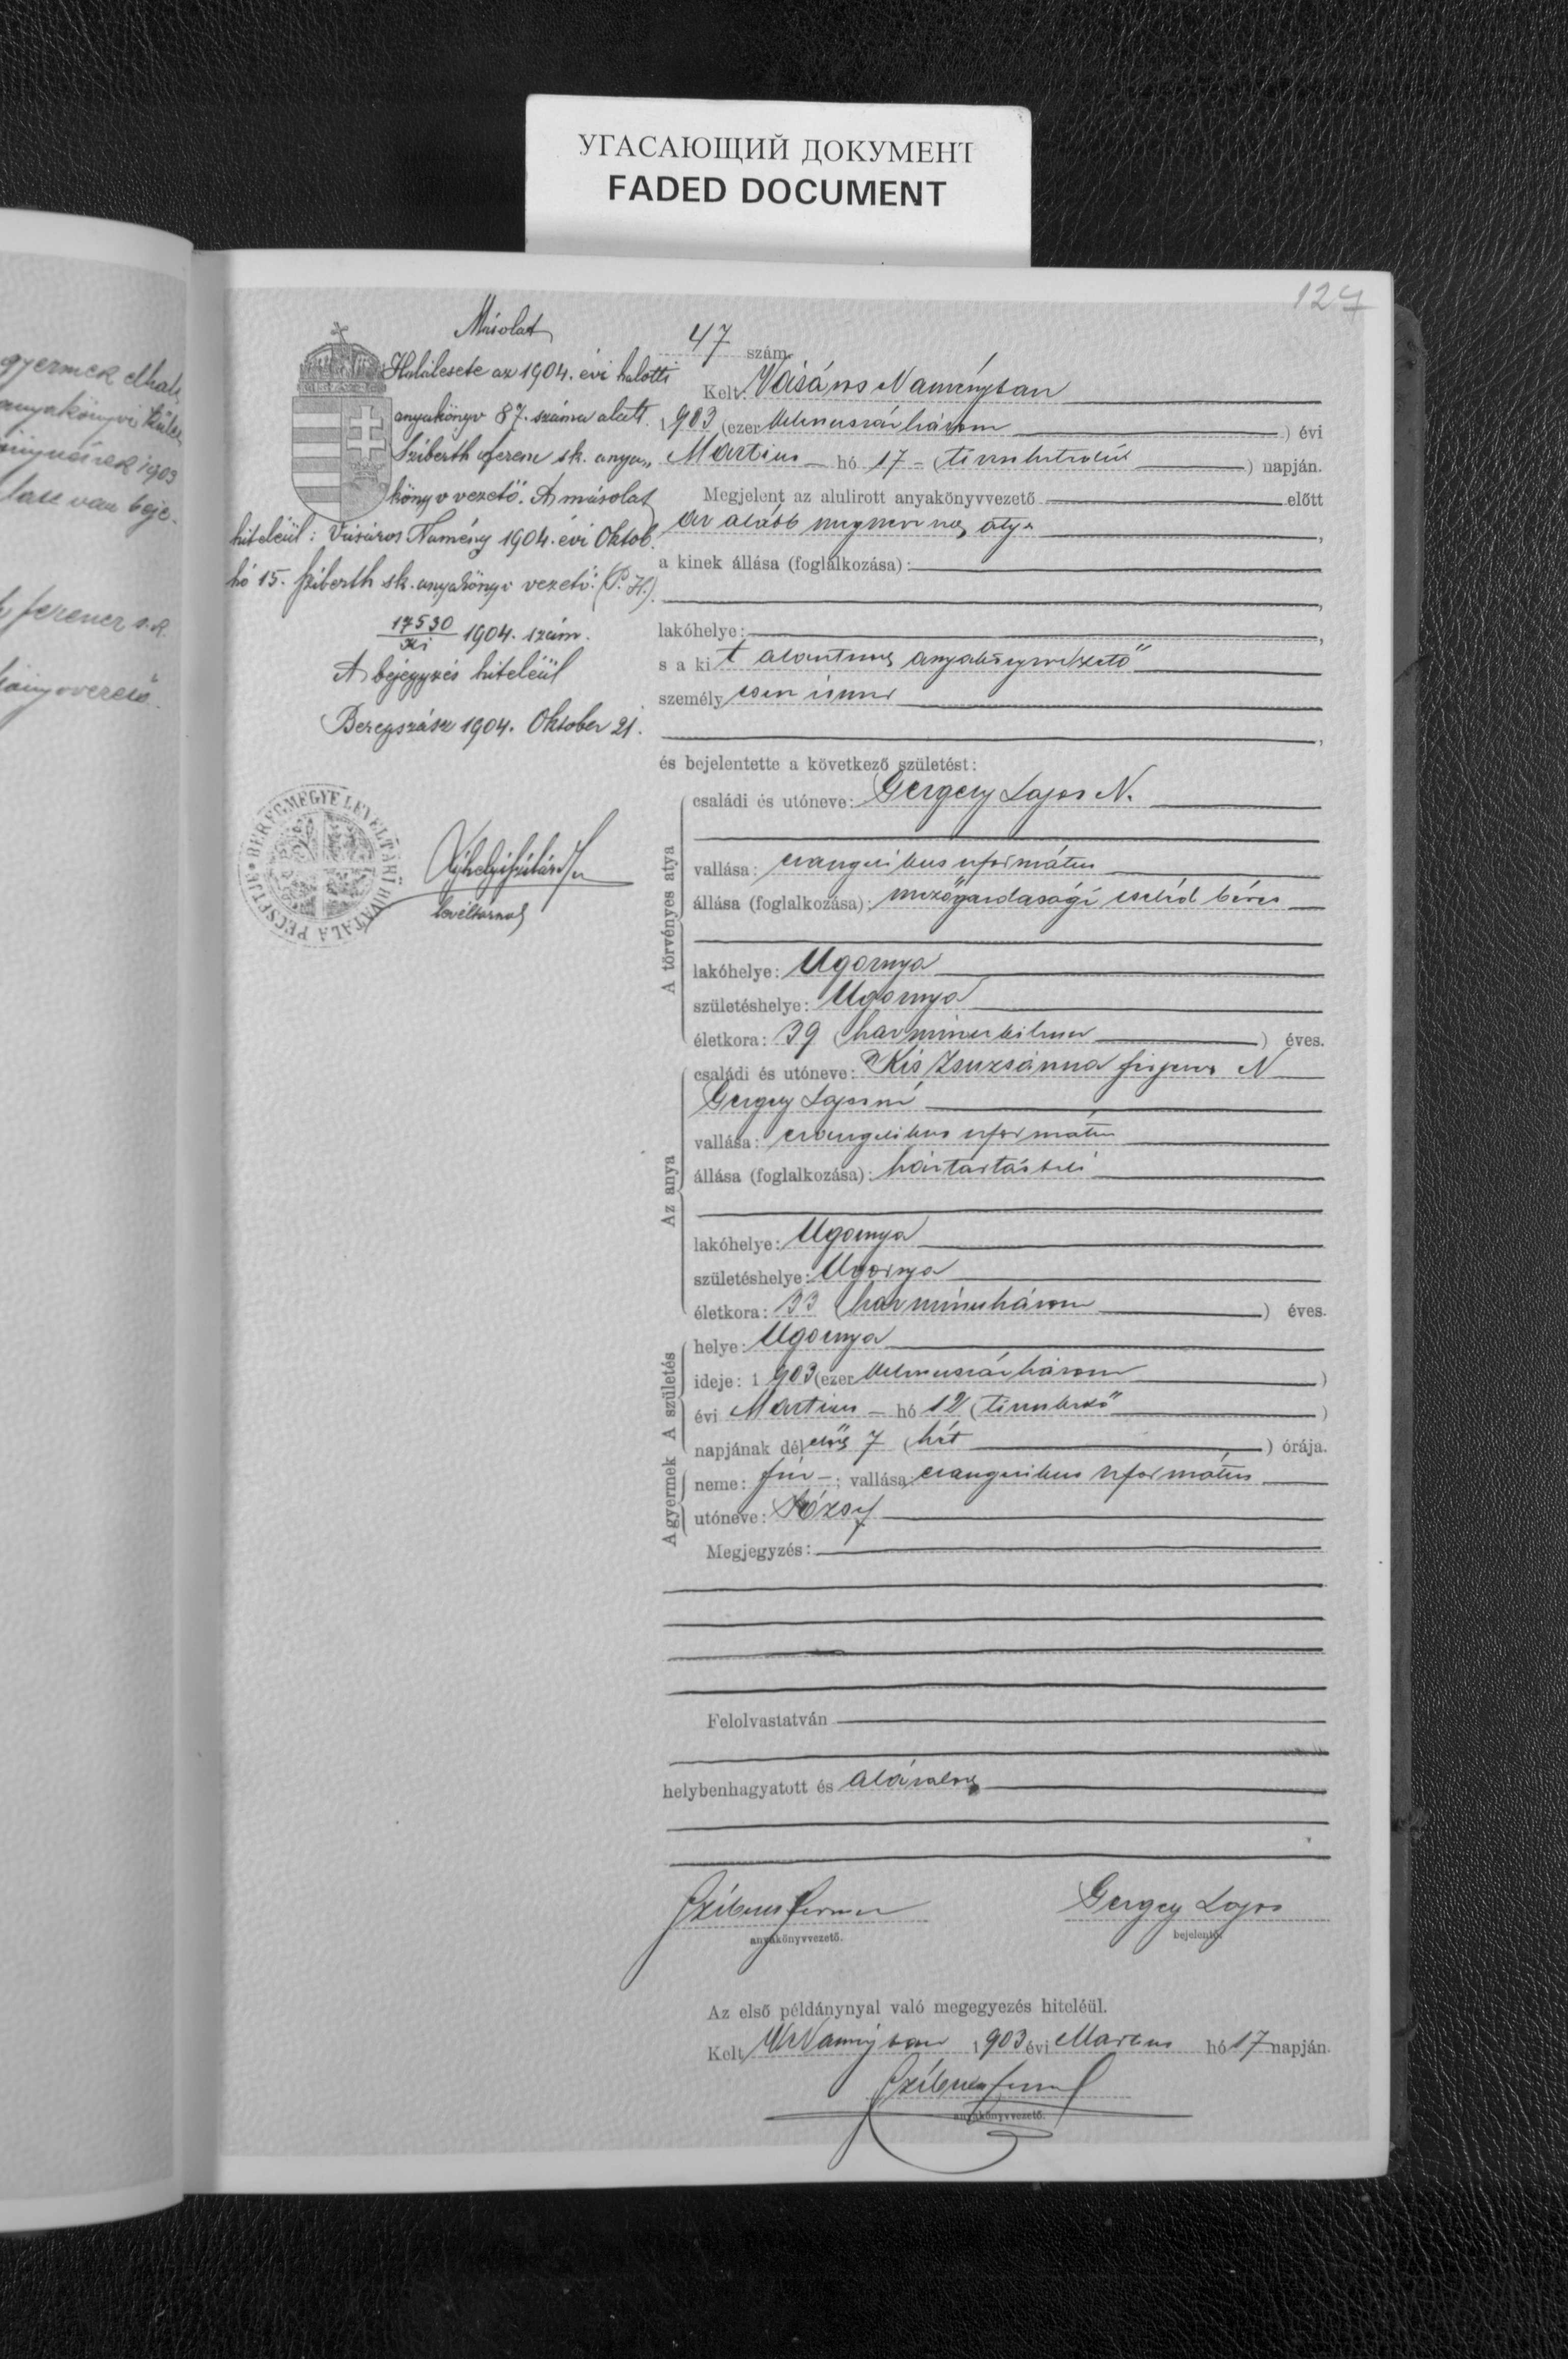 УГАСАЮЩИЙ ДОКУМЕНТ
FADED DOCUMENT
127
gyermek elhalt
anyakönyvi
1903
van beje-
ferencz s.k.
Másolat
Halálesete az 1904. évi halotti
anyakönyv 87. száma alatt.
Sziberth Ferenc sk. anya„
könyvvezető. A másolat
hiteléül: Vásáros Namény 1904. évi Oktob.
hó 15. Sziberth sk. anyakönyvvezető. (P. H.).
17530/ki 1904. szám.
A bejegyzés hiteléül
Beregszász 1904. Oktober 21.
BEREGMEGYE LEVÉLTÁRI HIVATALA PECSETJE
levéltárnok
47 szám.
Kelt Vásáros Naményban
1903 (ezer kilenczszázhárom) évi
Martius hó 17 (tizenhetedik) napján.
Megjelent az alulirott anyakönyvvezető előtt
az alább megnevezett atya,
a kinek állása (foglalkozása):
lakóhelye:
s a kit alantirott anyakönyvvezető
személyesen ismer
és bejelentette a következő születést:
A törvényes atya
családi és utóneve: Gergely Lajos N.
vallása: evangelikus református
állása (foglalkozása): mezőgazdasági cseléd béres
lakóhelye: Ugornya
születéshelye: Ugornya
életkora: 39 (harminczkilencz) éves.
Az anya
családi és utóneve: Kis Zsuzsánna férjezve N
Gergely Lajosné
vallása: evangelikus református
állása (foglalkozása): háztartásbeli
lakóhelye: Ugornya
születéshelye: Ugornya
életkora: 33 (harminczhárom) éves.
A gyermek A születés
helye: Ugornya
ideje: 1903 (ezer kilenczszázhárom)
évi Martius hó 12 (tizenkettő)
napjának délelőtt 7 (hét) órája.
neme: fiú; vallása: evangelikus református
utóneve: József
Megjegyzés:
Felolvastatván
helybenhagyatott és aláiratott
Sziberth Ferencz
anyakönyvvezető.
Gergely Lajos
bejelentő.
Az első példánynyal való megegyezés hiteléül.
Kelt V Naményban 1903 évi Marcius hó 17 napján.
Sziberth Ferencz
anyakönyvvezető.